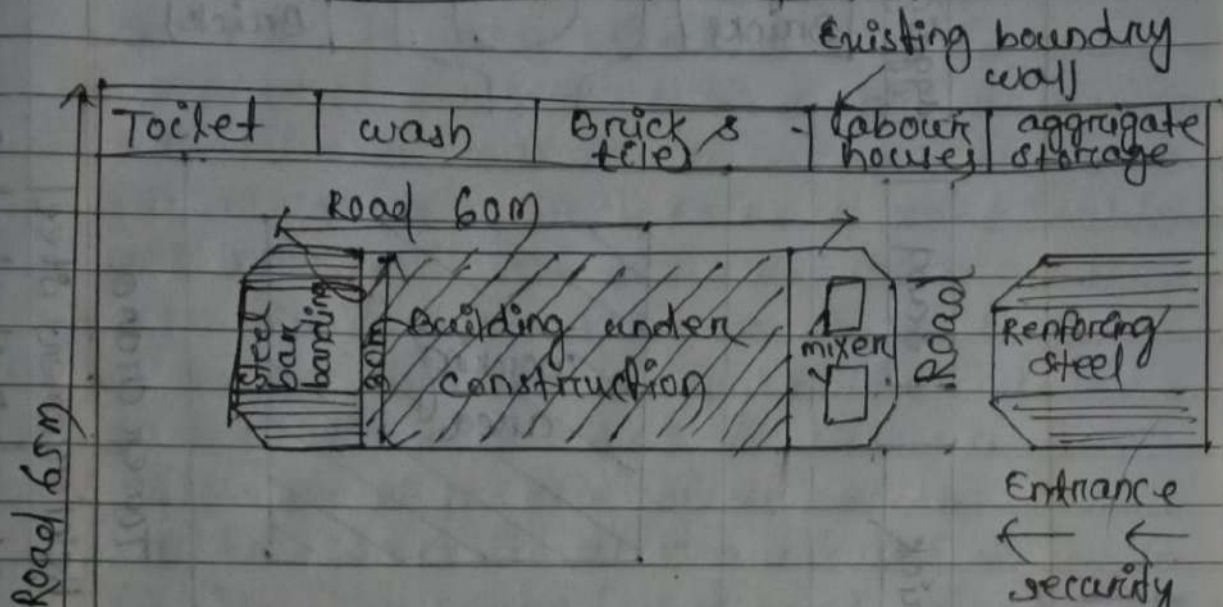 Existing boundry
wall
Toilet
wash
Brick &
tiles
labour
houses
aggrigate
storage
Road 60m
Steel
bar
banding
30m
Building under
construction
mixer
Road
Renforcing
steel
Entrance
security
Road 65m